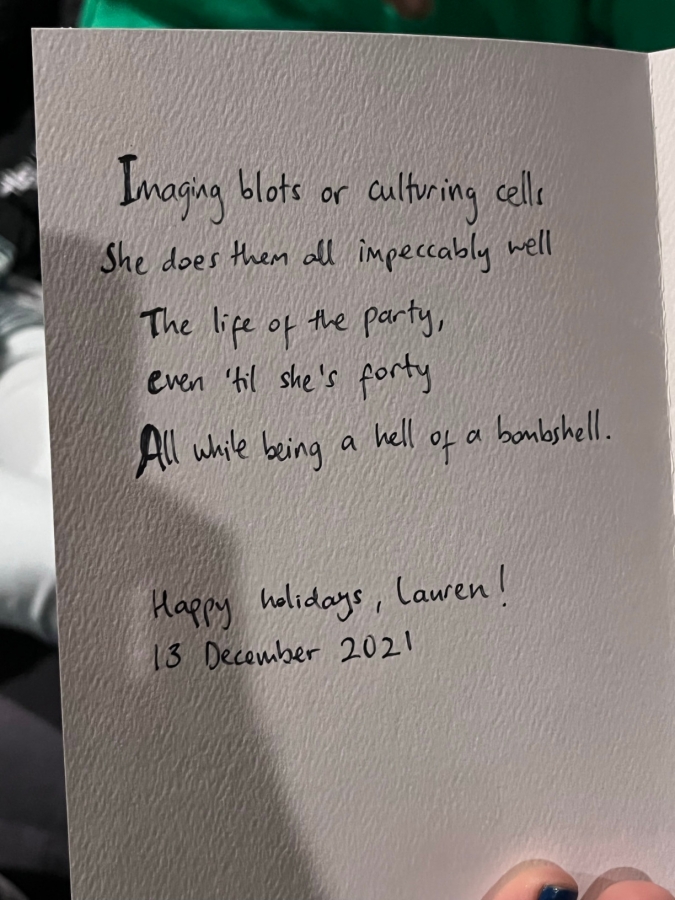 Imaging blots or culturing cells
She does them all impeccably well
The life of the party,
even 'til she's forty
All while being a hell of a bombshell.
Happy holidays, Lauren!
13 December 2021